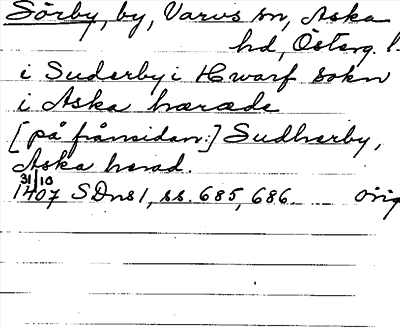 Sörby, by, Varvs sn, Aska
hd, Österg. l.
i Suderby i Hwarf sokn
i Aska hæræde
[på frånsidan:] Sudhærby,
Aska hærad.
31/10
1407 SDns 1, ss. 685, 686. orig